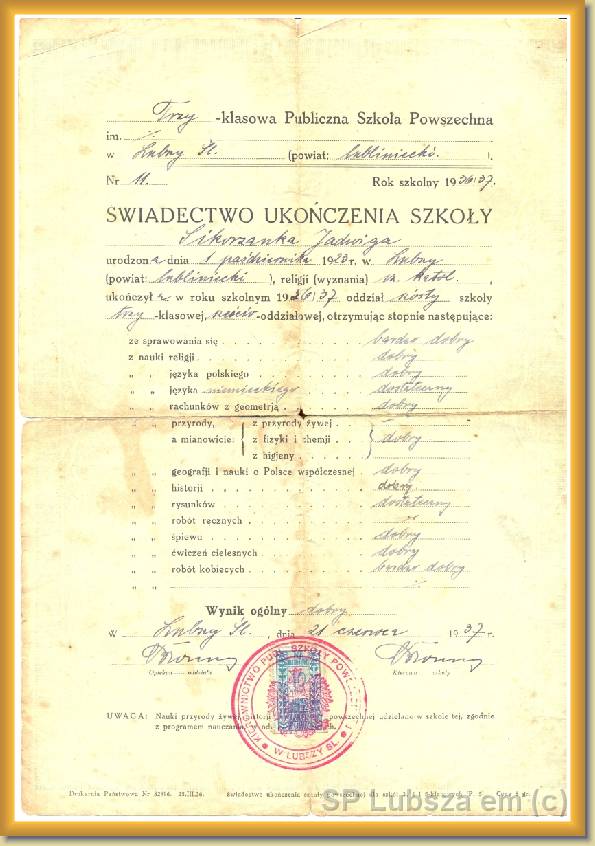 Trzy -klasowa Publiczna Szkoła Powszechna
im. ./.
w Lubszy Śl. (powiat: lubliniecki. ).
Nr 11. Rok szkolny 1936/37.
ŚWIADECTWO UKOŃCZENIA SZKOŁY
Sikorzanka Jadwiga
urodzona dnia 1 października 1923 r. w Lubszy
(powiat lubliniecki ), religji (wyznania) rz. katol. ,
ukończyła w roku szkolnym 1936/37 oddział szósty szkoły
trzy -klasowej, sześcio-oddziałowej, otrzymując stopnie następujące:
ze sprawowania się bardzo dobry
z nauki religji dobry
" " języka polskiego dobry
" " języka niemieckiego dostateczny
" " rachunków z geometrją dobry
" " przyrody, z przyrody żywej
a mianowicie: z fizyki i chemji dobry
z higjeny
" " geografji i nauki o Polsce współczesnej dobry
" " historji dobry
" " rysunków dostateczny
" " robót ręcznych
" " śpiewu dobry
" " ćwiczeń cielesnych dobry
" " robót kobiecych bardzo dobry
" " ./.
Wynik ogólny dobry
w Lubszy Śl. , dnia 21 czerwca 1937 r.
Opiekun oddziału Kierownik szkoły
KIEROWNICTWO PUBL. SZKOŁY POWSZECHNEJ
W LUBSZY ŚL.
UWAGA: Nauki przyrody żywej, historji powszechnej udzielano w szkole tej, zgodnie
z programem nauczania, w
Drukarnia Państwowa Nr 23.III.36. Świadectwo ukończenia szkoły powszechnej dla szkół Cena 5 gr.
SP Lubsza em (c)